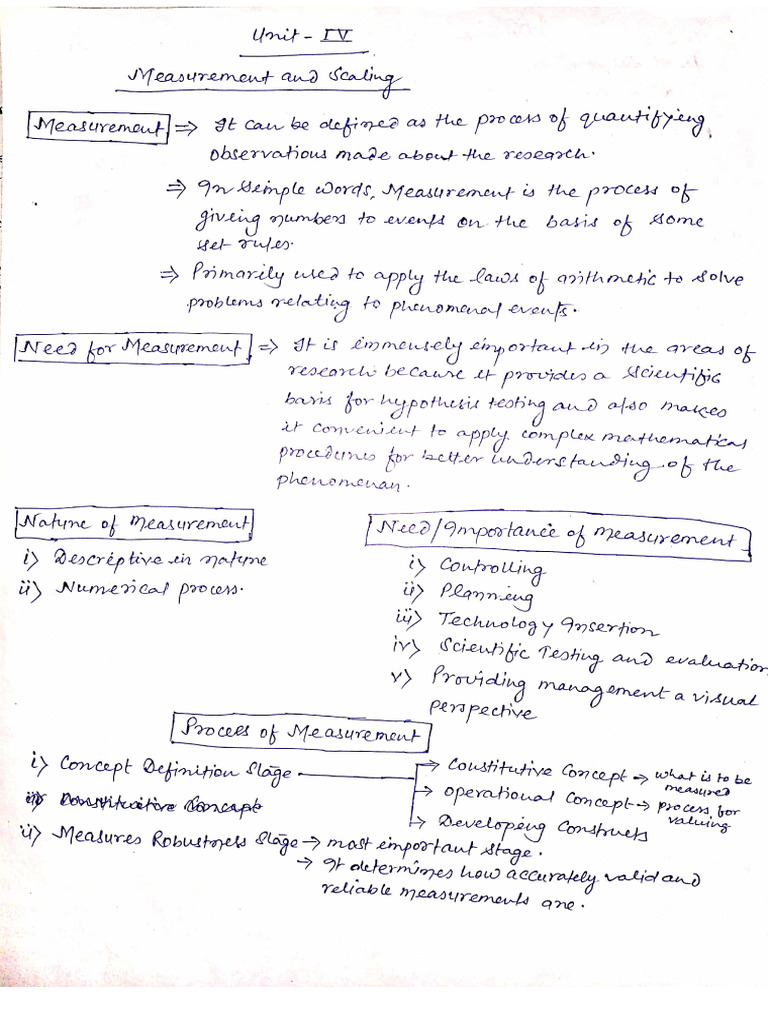 Unit - IV
Measurement and Scaling
Measurement ⇒ It can be defined as the process of quantifying
observations made about the research.
⇒ In simple words, Measurement is the process of
giving numbers to events on the basis of some
set rules.
⇒ Primarily used to apply the laws of arithmetic to solve
problems relating to phenomenal events.
Need for Measurement ⇒ It is immensely important in the areas of
research because it provides a scientific
basis for hypothesis testing and also makes
it convenient to apply complex mathematical
procedures for better understanding of the
phenomenan.
Nature of Measurement
i) Descriptive in nature
ii) Numerical process.
Need/Importance of measurement
i) Controlling
ii) Planning
iii) Technology Insertion
iv) Scientific Testing and evaluation
v) Providing management a visual
perspective
Process of Measurement
i) Concept Definition Stage
→ Constitutive Concept → what is to be
measured
→ Operational Concept → process for
valuing
→ Developing Constructs
ii) Constitutive Concept
ii) Measures Robustness Stage → most important stage.
→ It determines how accurately valid and
reliable measurements are.